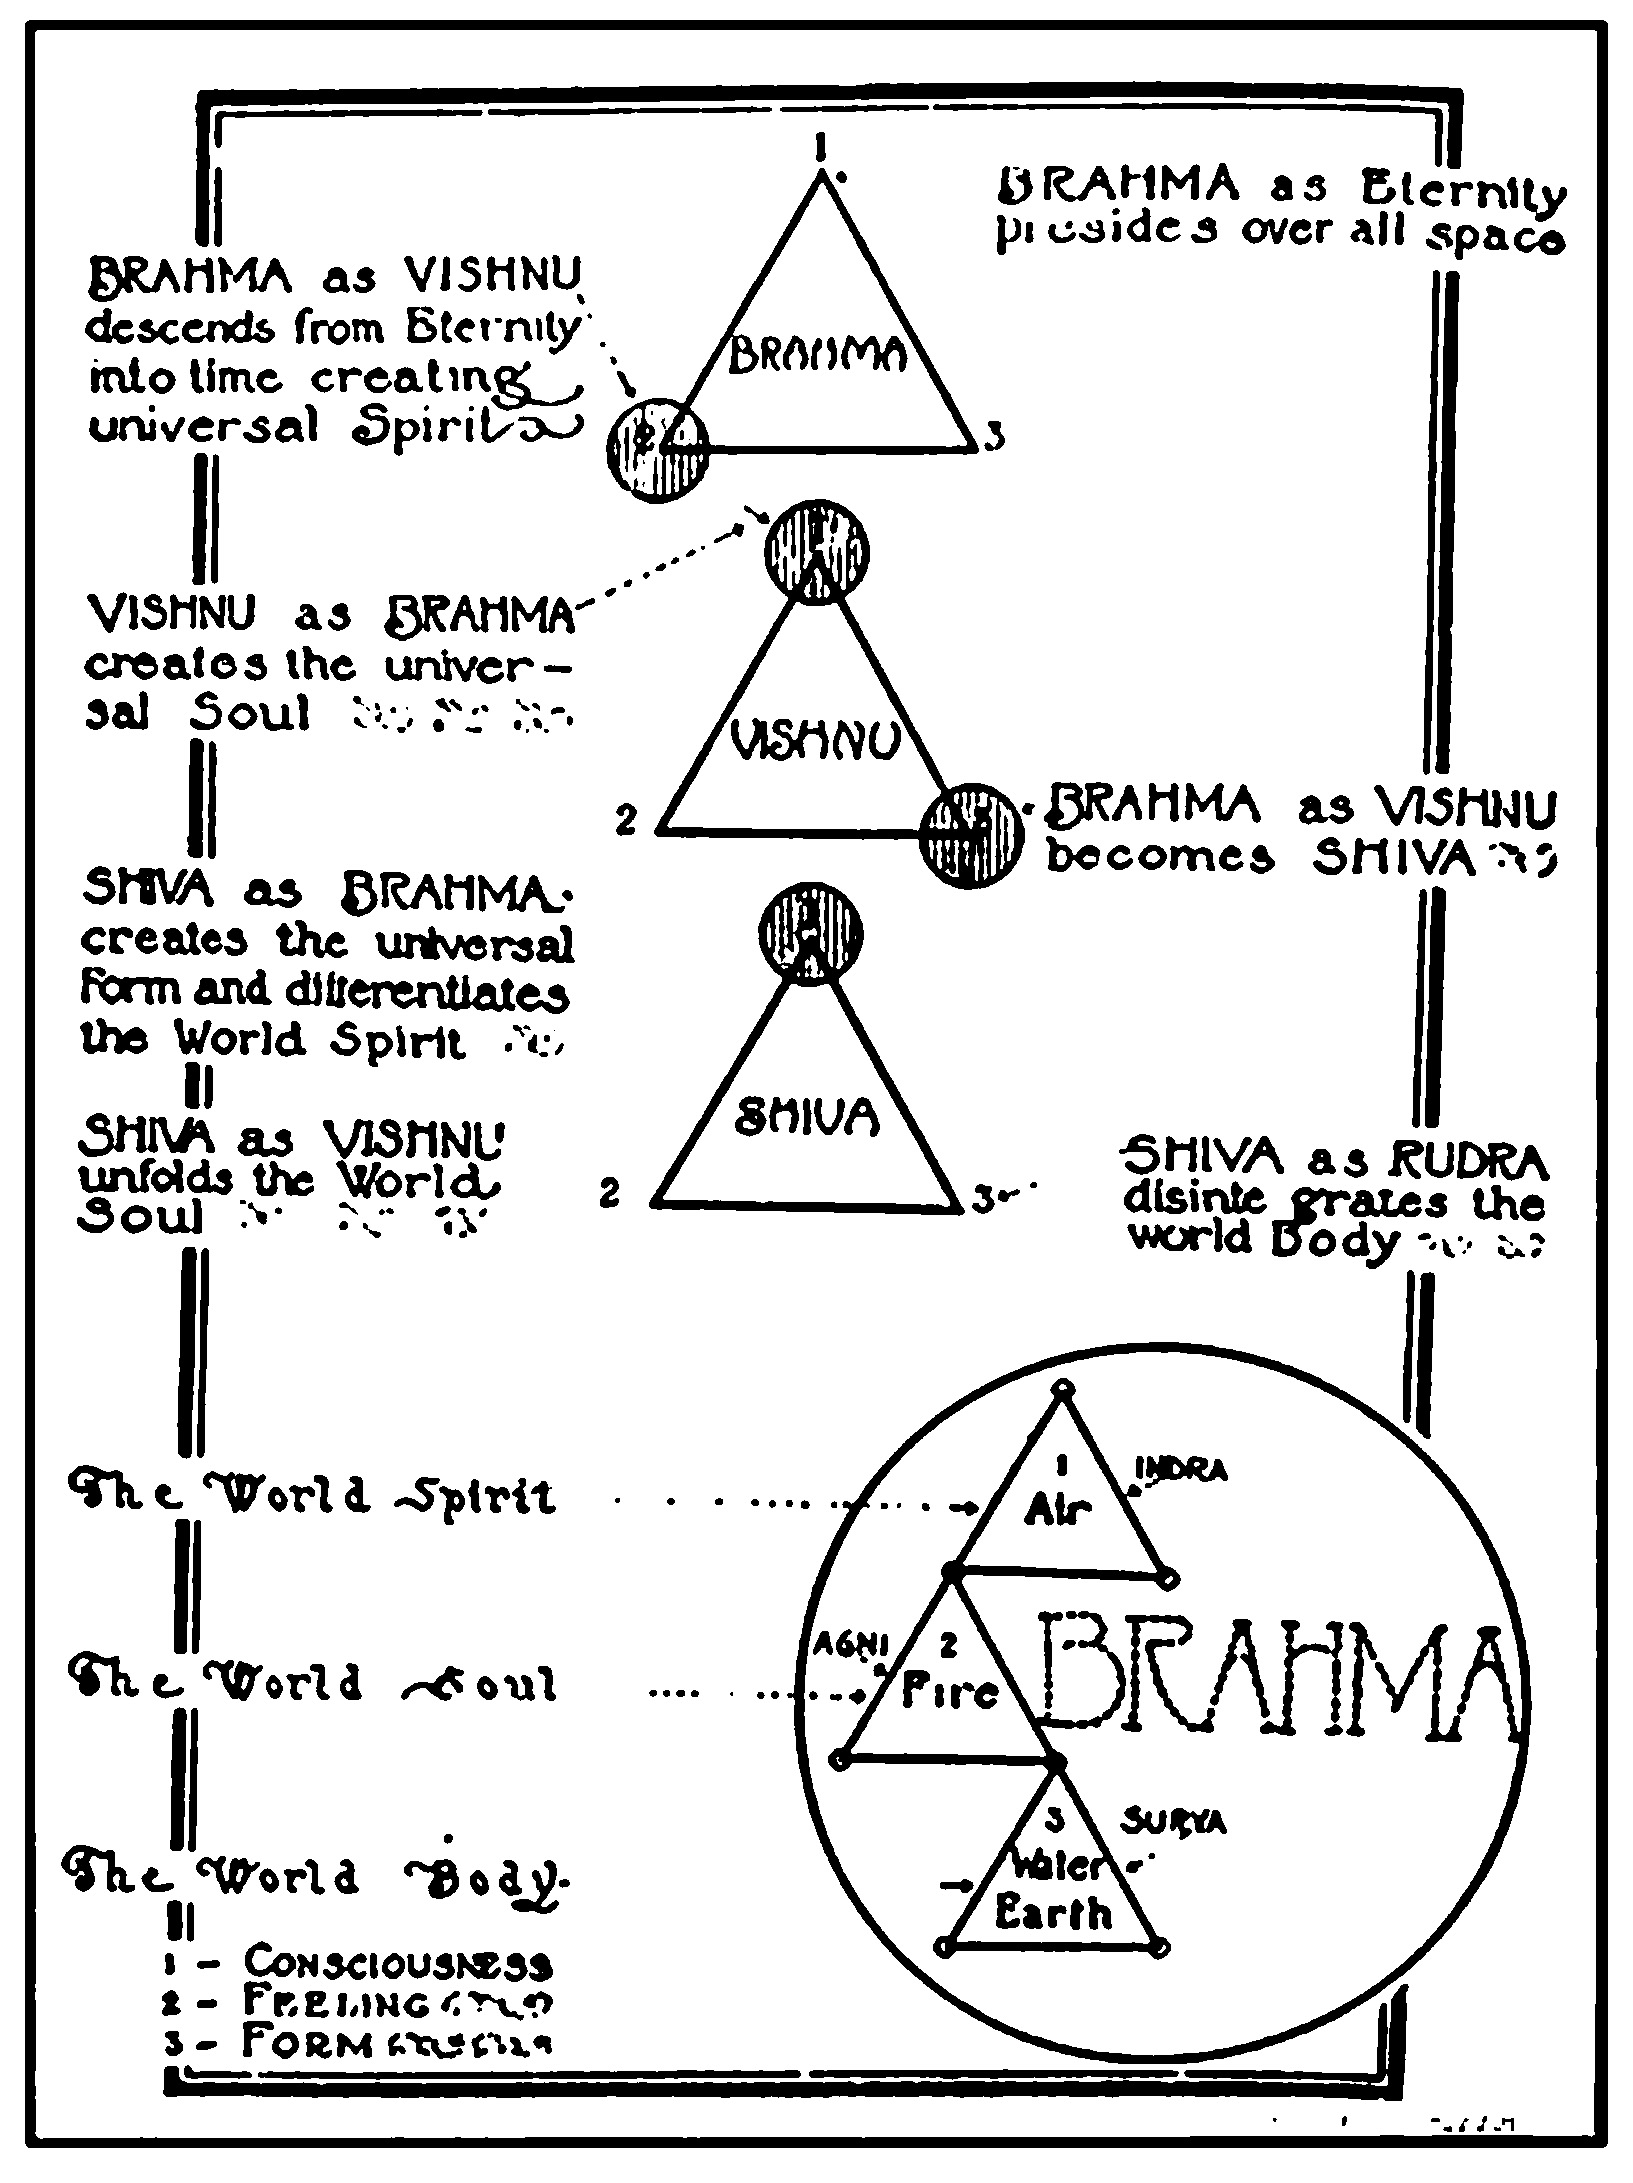 1
BRAHMA as Eternity
presides over all space
BRAHMA as VISHNU
descends from Eternity
into time creating
universal Spirit
BRAHMA
2
3
VISHNU as BRAHMA
creates the univer-
sal Soul
VISHNU
2
BRAHMA as VISHNU
becomes SHIVA
SHIVA as BRAHMA
creates the universal
Form and differentiates
the World Spirit
SHIVA as VISHNU
unfolds the World
Soul
SHIVA
2
3
SHIVA as RUDRA
disinte grates the
world Body
The World Spirit
1
Air
INDRA
The World Soul
AGNI
2
Fire
BRAHMA
The World Body
3
Water
Earth
SURYA
1 - CONSCIOUSNESS
2 - FEELING
3 - FORM